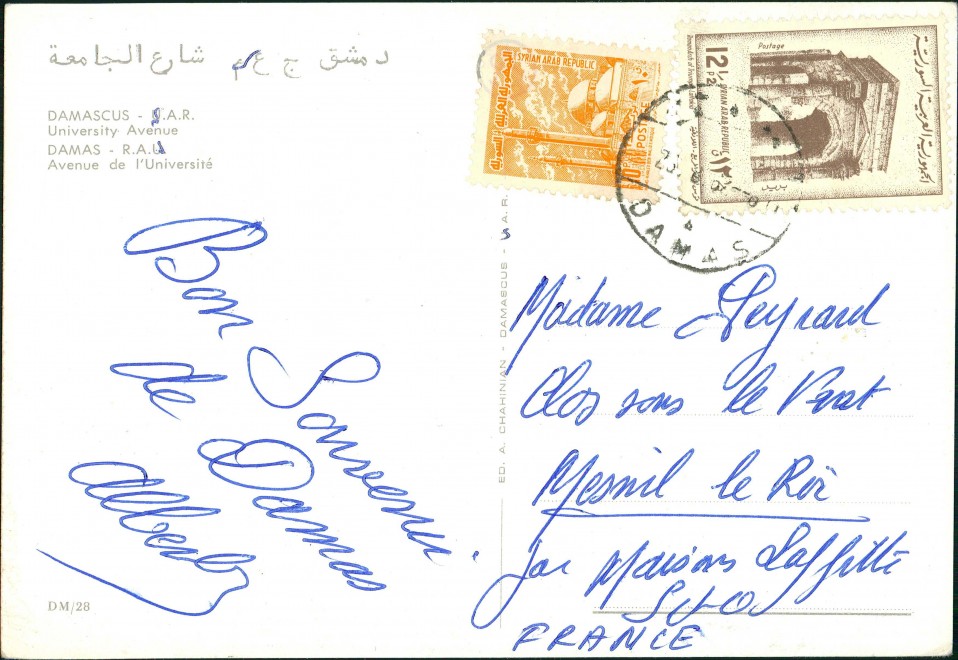 دمشق ج ع م شارع الجامعة
DAMASCUS - S.A.R.
University Avenue
DAMAS - R.A.U
Avenue de l'Université
Bon Souvenir
de Damas
Albert
DM/28
ED. A. CHAHINIAN - DAMASCUS - S.A.R.
SYRIAN ARAB REPUBLIC
الجمهورية العربية السورية
POSTAGE
Postage
12½ P
SYRIAN ARAB REPUBLIC
الجمهورية العربية السورية
بريد
DAMAS
Madame Peyrard
Clos sous le Vent
Mesnil le Roi
par Maisons Laffitte
S & O
FRANCE